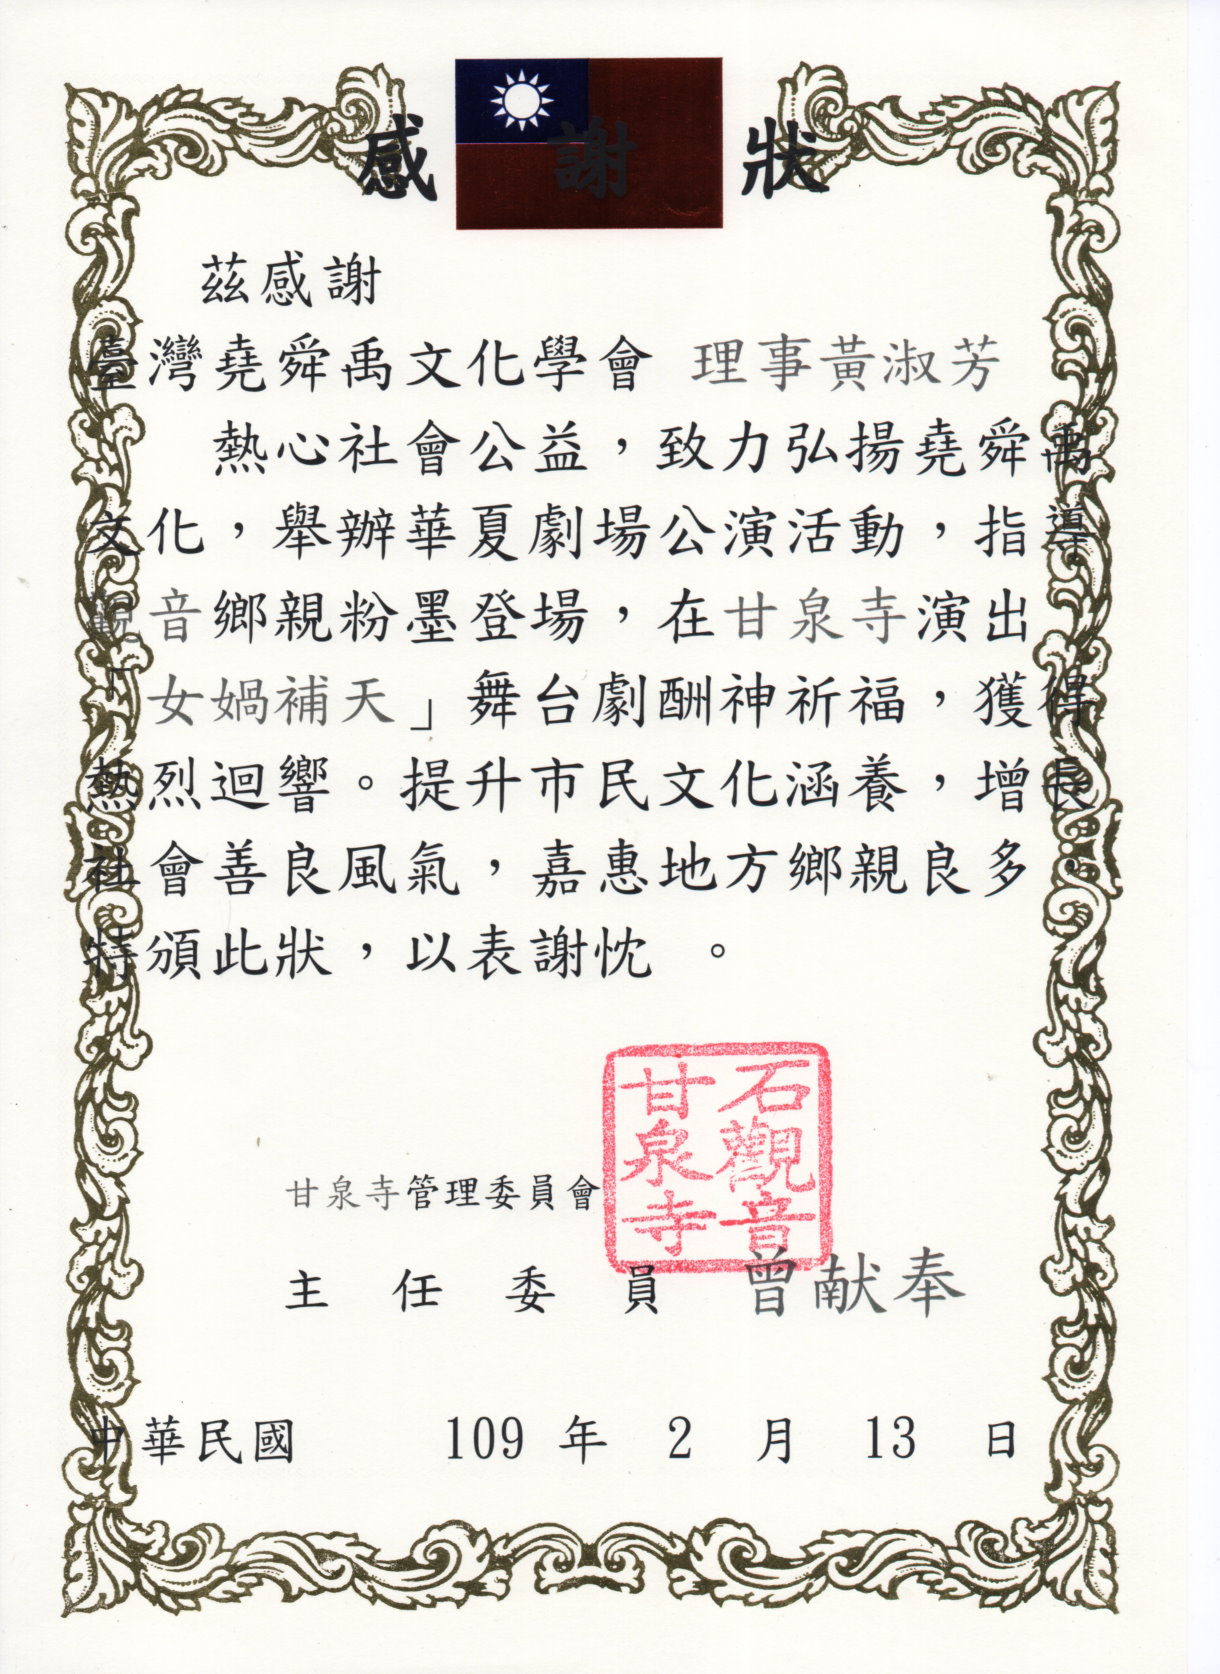 感謝狀
茲感謝
臺灣堯舜禹文化學會 理事黃淑芳
熱心社會公益，致力弘揚堯舜禹
文化，舉辦華夏劇場公演活動，指導
觀音鄉親粉墨登場，在甘泉寺演出
「女媧補天」舞台劇酬神祈福，獲得
熱烈迴響。提升市民文化涵養，增長
社會善良風氣，嘉惠地方鄉親良多。
特頒此狀，以表謝忱 。
石觀音
甘泉寺
甘泉寺管理委員會
主任委員 曾献奉
中華民國 109 年 2 月 13 日